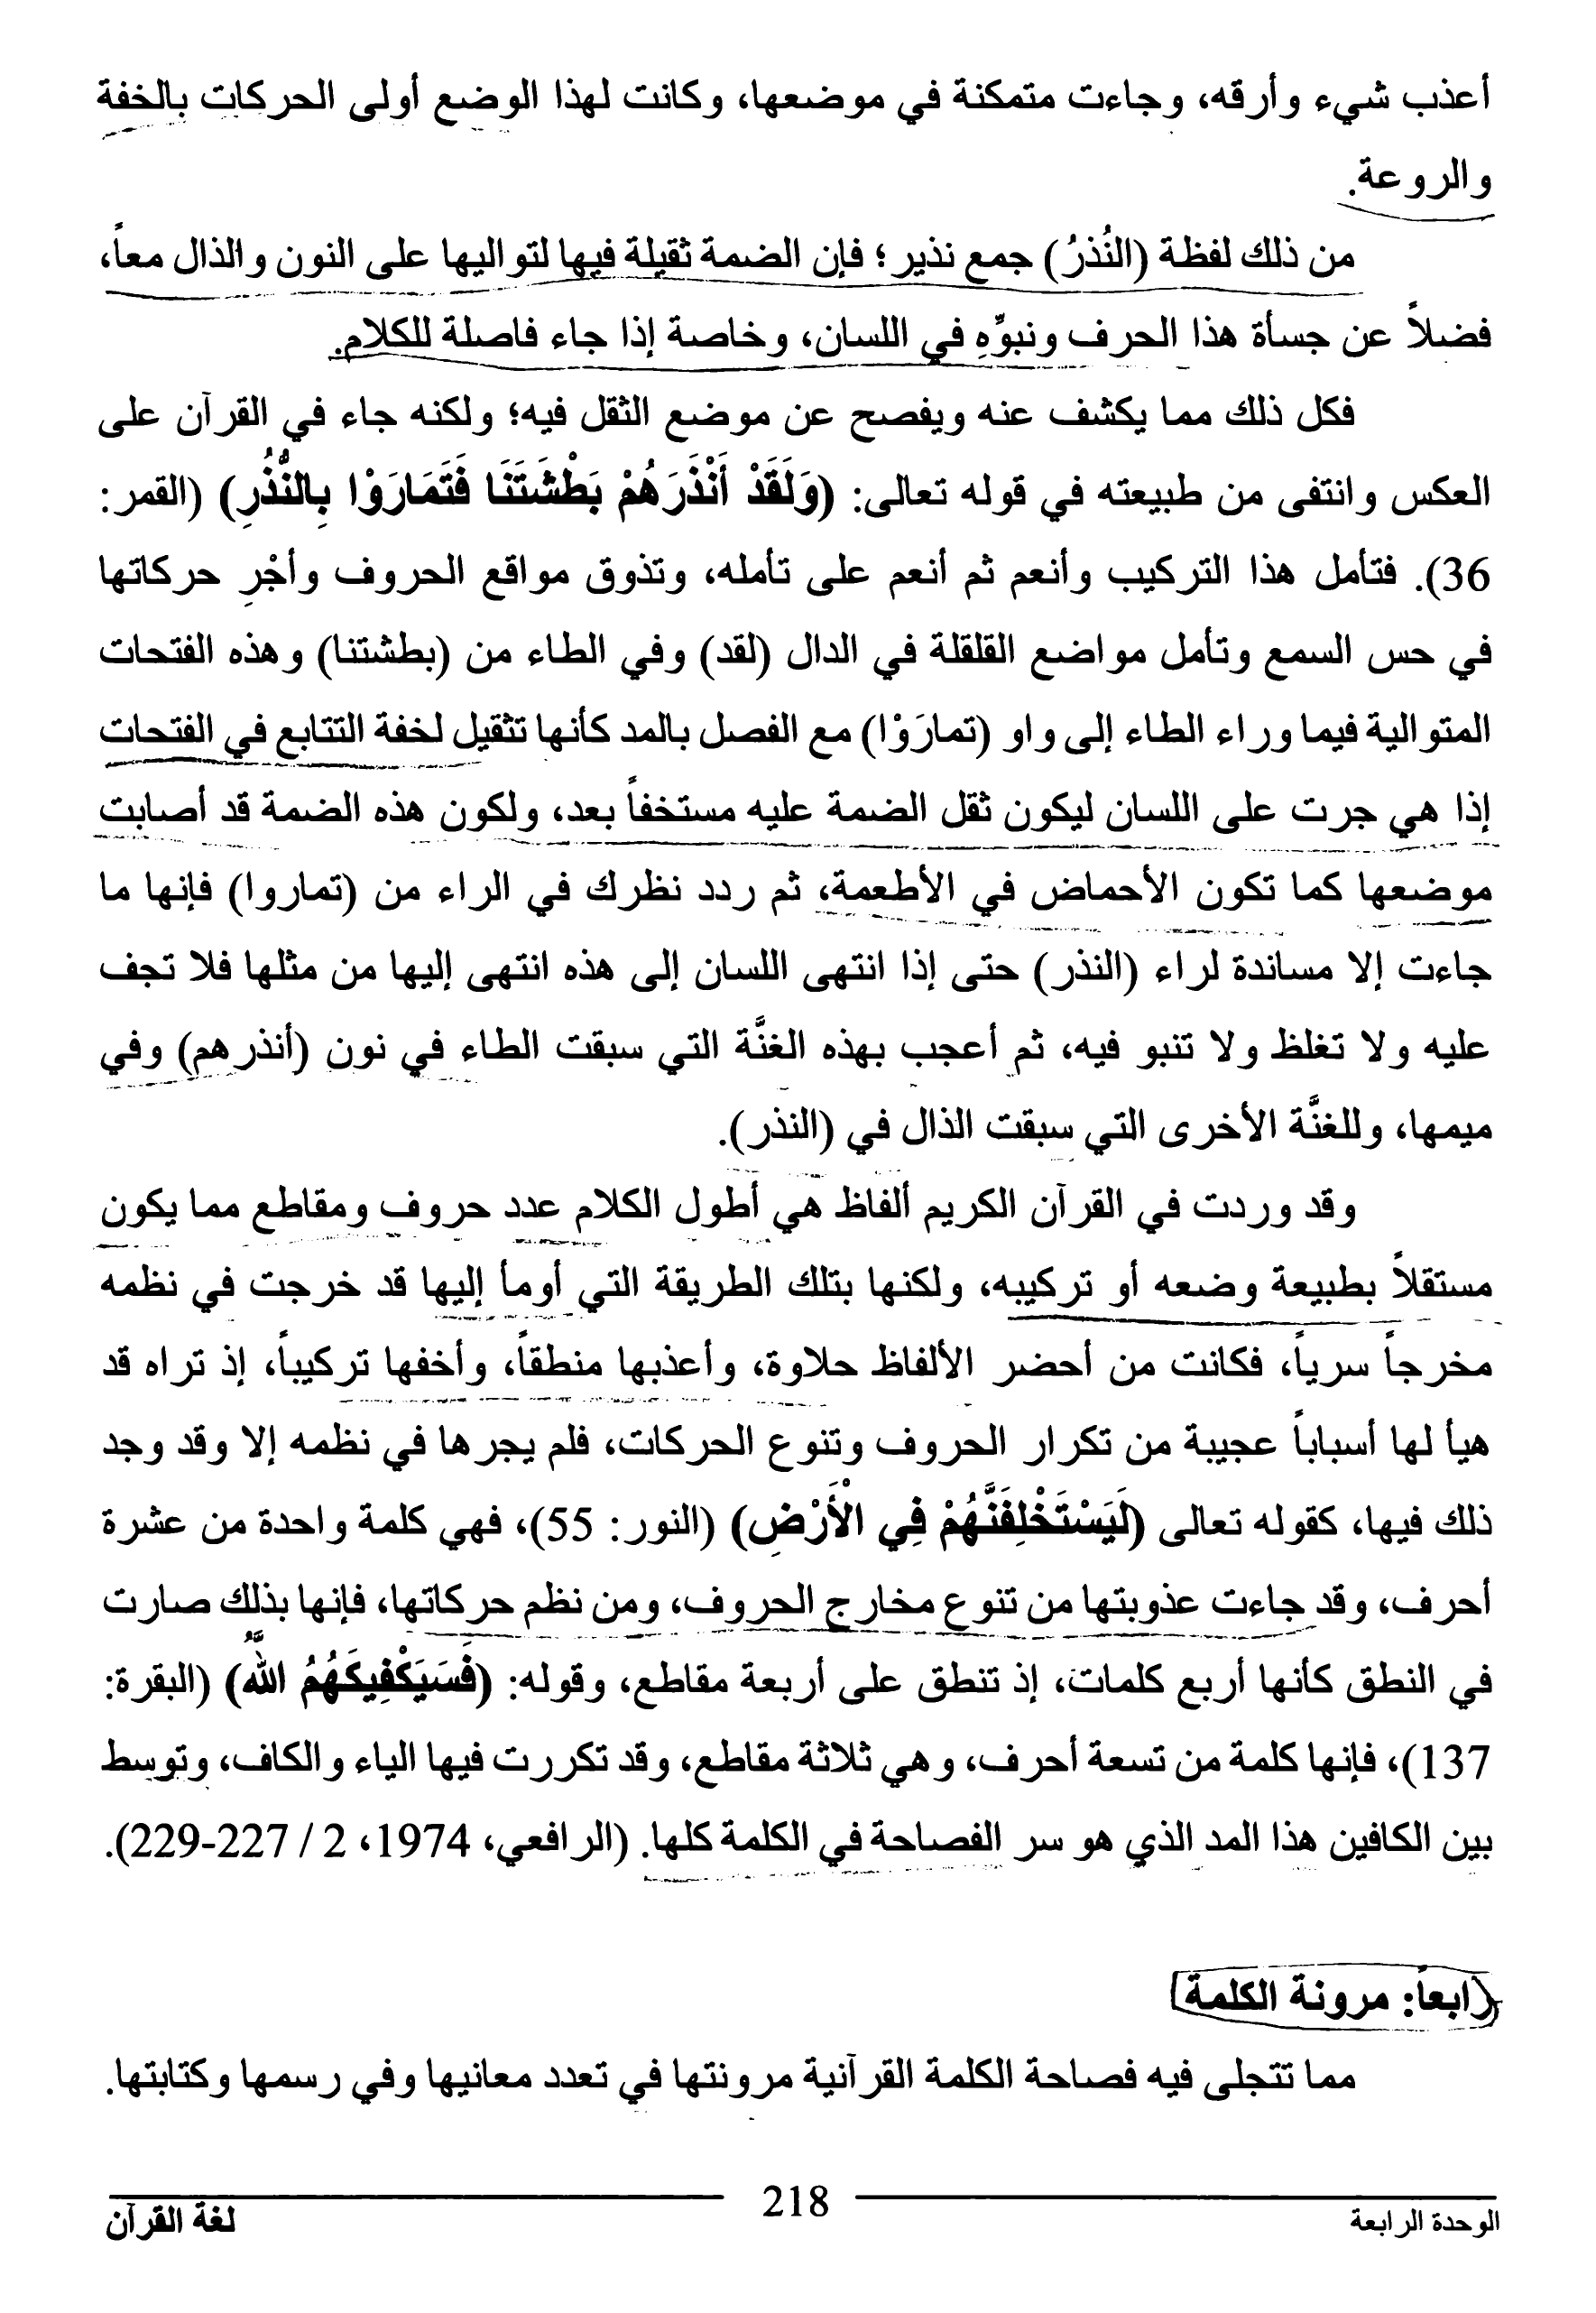 أعذب شيء وأرقه، وجاءت متمكنة في موضعها، وكانت لهذا الوضع أولى الحركات بالخفة
والروعة.
من ذلك لفظة (النُذرُ) جمع نذير؛ فإن الضمة ثقيلة فيها لتواليها على النون والذال معاً،
فضلاً عن جسأة هذا الحرف ونبوِّهِ في اللسان، وخاصة إذا جاء فاصلة للكلام.
فكل ذلك مما يكشف عنه ويفصح عن موضع الثقل فيه؛ ولكنه جاء في القرآن على
العكس وانتفى من طبيعته في قوله تعالى: (وَلَقَدْ أَنْذَرَهُمْ بَطْشَتَنَا فَتَمَارَوْا بِالنُّذُرِ) (القمر:
36). فتأمل هذا التركيب وأنعم ثم أنعم على تأمله، وتذوق مواقع الحروف وأجْرِ حركاتها
في حس السمع وتأمل مواضع القلقلة في الدال (لقد) وفي الطاء من (بطشتنا) وهذه الفتحات
المتوالية فيما وراء الطاء إلى واو (تمارَوْا) مع الفصل بالمد كأنها تثقيل لخفة التتابع في الفتحات
إذا هي جرت على اللسان ليكون ثقل الضمة عليه مستخفاً بعد، ولكون هذه الضمة قد أصابت
موضعها كما تكون الأحماض في الأطعمة، ثم ردد نظرك في الراء من (تماروا) فإنها ما
جاءت إلا مساندة لراء (النذر) حتى إذا انتهى اللسان إلى هذه انتهى إليها من مثلها فلا تجف
عليه ولا تغلظ ولا تنبو فيه، ثم أعجب بهذه الغنَّة التي سبقت الطاء في نون (أنذرهم) وفي
ميمها، وللغنَّة الأخرى التي سبقت الذال في (النذر).
وقد وردت في القرآن الكريم ألفاظ هي أطول الكلام عدد حروف ومقاطع مما يكون
مستقلاً بطبيعة وضعه أو تركيبه، ولكنها بتلك الطريقة التي أومأ إليها قد خرجت في نظمه
مخرجاً سرياً، فكانت من أحضر الألفاظ حلاوة، وأعذبها منطقاً، وأخفها تركيباً، إذ تراه قد
هيأ لها أسباباً عجيبة من تكرار الحروف وتنوع الحركات، فلم يجرها في نظمه إلا وقد وجد
ذلك فيها، كقوله تعالى (لَيَسْتَخْلِفَنَّهُمْ فِي الْأَرْضِ) (النور: 55)، فهي كلمة واحدة من عشرة
أحرف، وقد جاءت عذوبتها من تنوع مخارج الحروف، ومن نظم حركاتها، فإنها بذلك صارت
في النطق كأنها أربع كلمات، إذ تنطق على أربعة مقاطع، وقوله: (فَسَيَكْفِيكَهُمُ اللَّهُ) (البقرة:
137)، فإنها كلمة من تسعة أحرف، وهي ثلاثة مقاطع، وقد تكررت فيها الياء والكاف، وتوسط
بين الكافين هذا المد الذي هو سر الفصاحة في الكلمة كلها. (الرافعي، 1974، 2 / 227-229).
رابعاً: مرونة الكلمة
مما تتجلى فيه فصاحة الكلمة القرآنية مرونتها في تعدد معانيها وفي رسمها وكتابتها.
الوحدة الرابعة 218 لغة القرآن